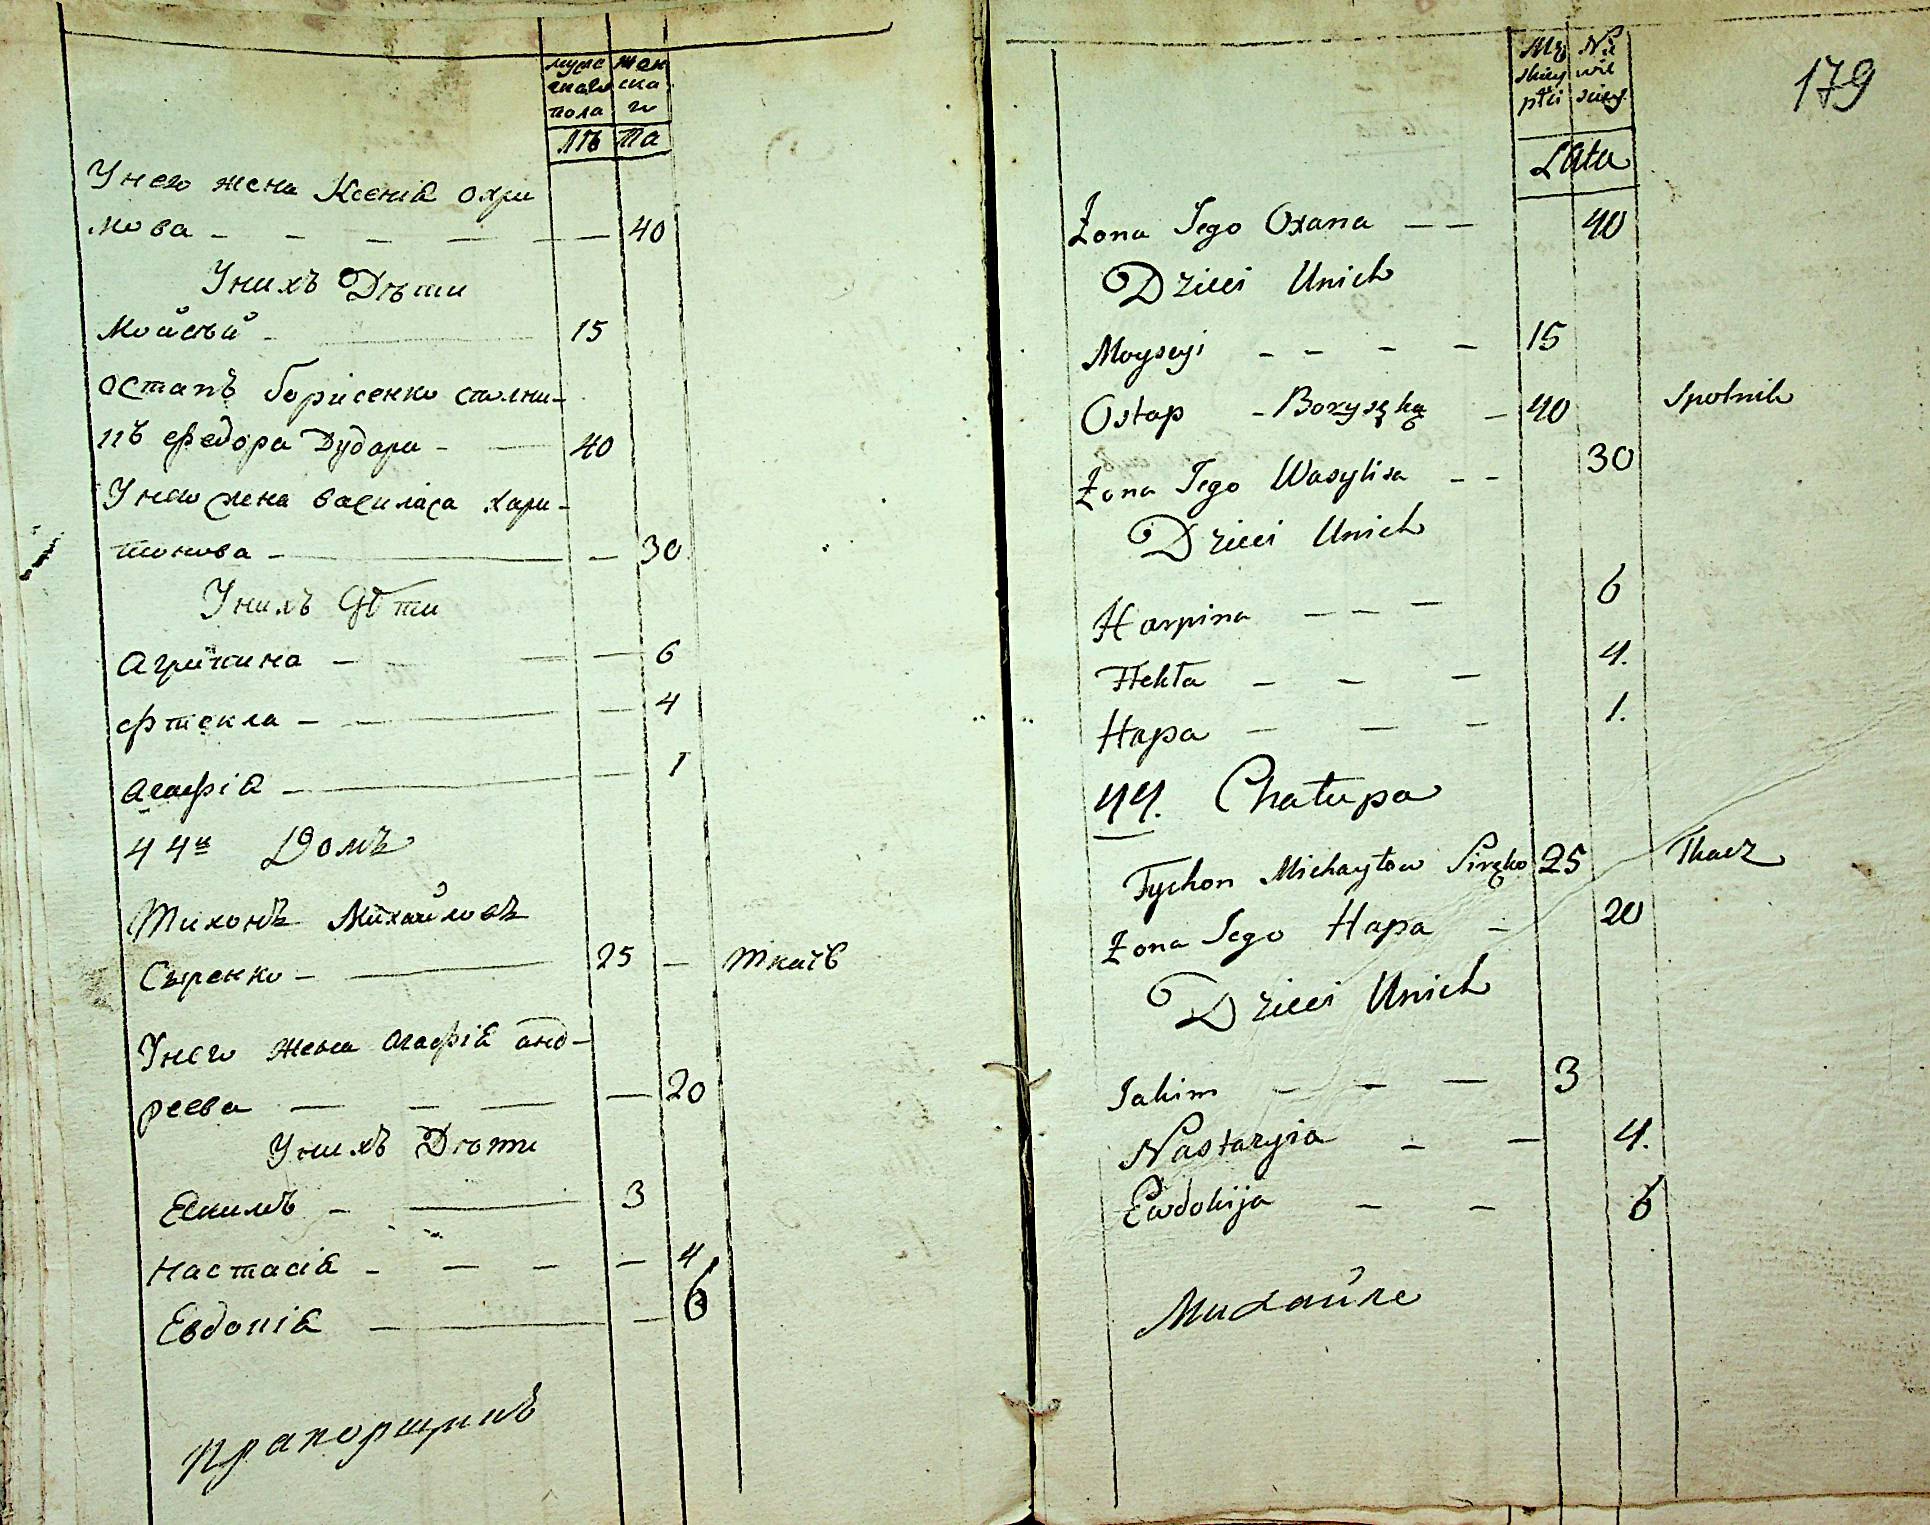 мужс жен
каго ска
пола го
лѣ та
У него жена Ксеніа Охри
мова - - - - - - 40
У нихъ Дѣти
Мойсѣй - 15
Остапъ борисенко сполни-
къ Федора Дударя - - 40
У него жена василіса хари-
тонова - - 30
У нихъ Дѣти
Агрипина - - - - 6
Фтекла - - - 4
Агафіа - - 1
44й Домъ
Тихонъ Михайловъ
Сыренко - - 25 - Ткачъ
У него жена Агафіа анд-
реева - - - - 20
У нихъ Дѣти
Екимъ - - 3
Настасіа - - - - 4
Евдокіа - - 6
Прапорщикъ
Męż Nie
skiey wie
płci sciey
Lata
179
Żona Jego Oxana - - 40
Dzieci Unich
Moyseyi - - - - 15
Ostap - Boryszko - 40 Spolnik
Żona Jego Wasylisa - - 30
Dzieci Unich
Harpina - - - 6
Ftekła - - - 4.
Hapa - - - 1.
44. Chałupa
Tychon Michayłow Siręko 25 Tkacz
Żona Jego Hapa - 20
Dzieci Unich
Jakim - - - 3
Nastazyia - - 4.
Ewdokija - - 6
Михайле